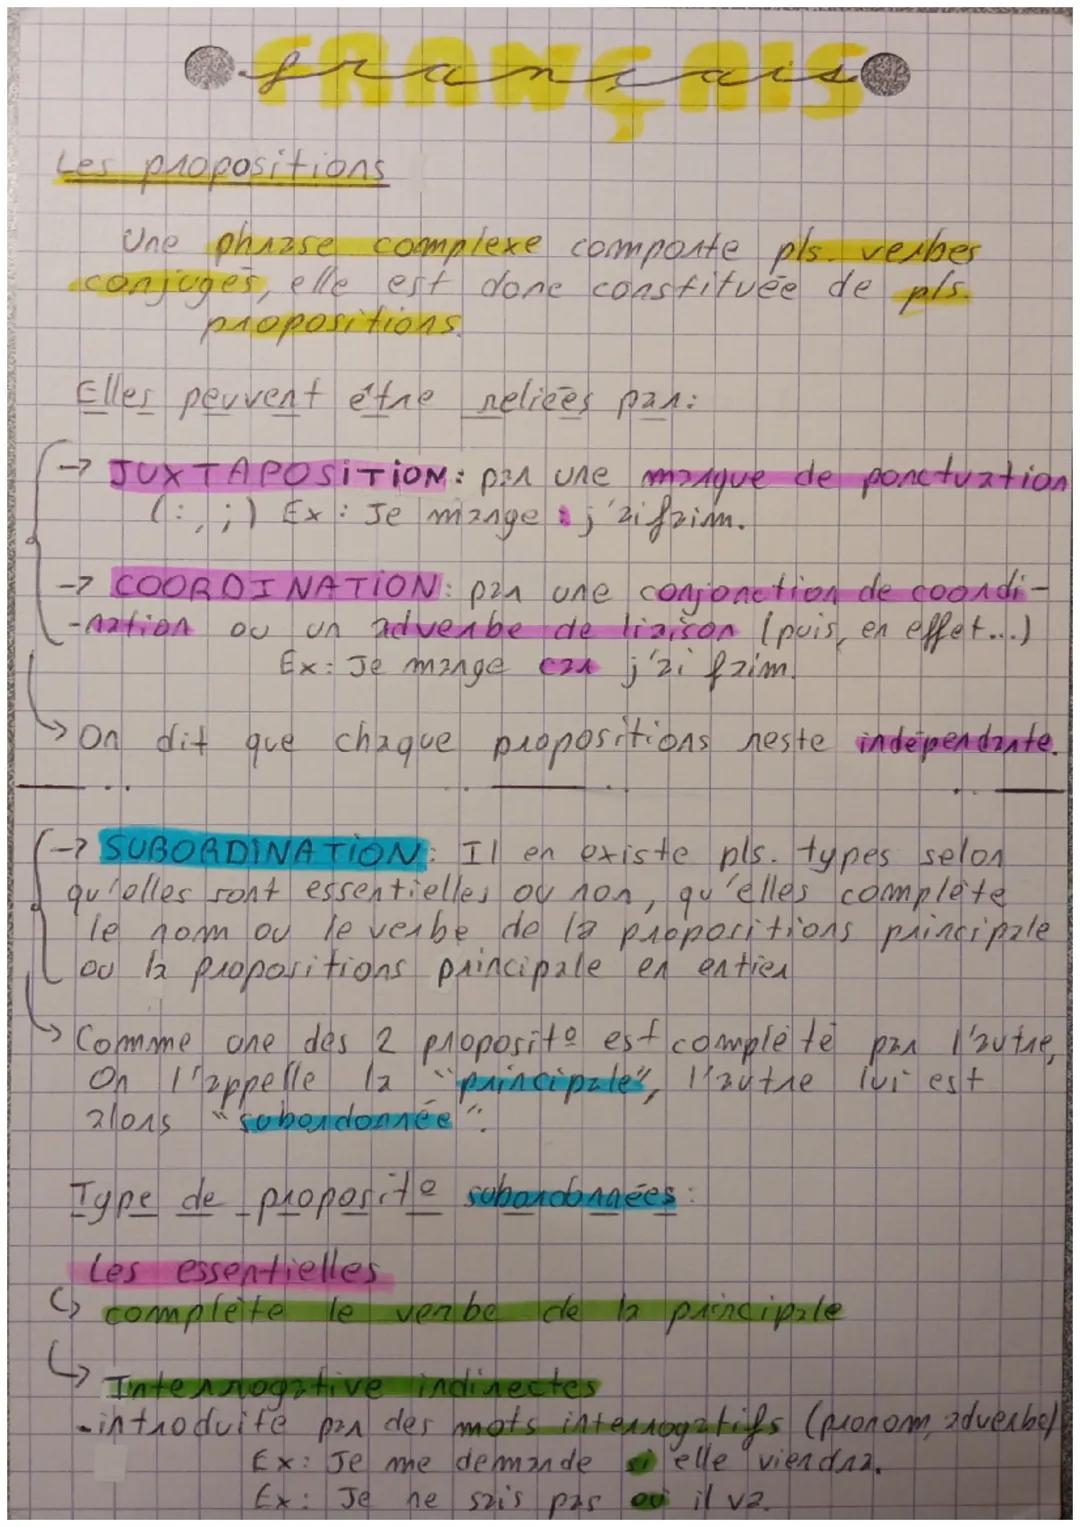 français
Les propositions
Une phrase complexe comporte pls. verbes
conjugés, elle est donc constituée de pls.
propositions.
Elles peuvent être reliées par:
→ JUXTAPOSITION: par une marque de ponctuation
(:, ;) Ex: Je mange : j'ai faim.
→ COORDINATION: par une conjonction de coordi-
-nation ou un adverbe de liaison (puis, en effet...)
Ex: Je mange car j'ai faim.
→ On dit que chaque propositions reste indépendante.
→ SUBORDINATION: Il en existe pls. types selon
qu'elles sont essentielles ou non, qu'elles complète
le nom ou le verbe de la propositions principale
ou la propositions principale en entier
→ Comme une des 2 proposit° est complété par l'autre,
On l'appelle la "principale", l'autre lui est
alors "subordonnée".
Type de proposit° subordonnées:
Les essentielles
↳ complète le verbe de la principale
↳ Interrogative indirectes
-introduite par des mots interrogatifs (pronom, adverbe)
Ex: Je me demande si elle viendra.
Ex: Je ne sais pas où il va.